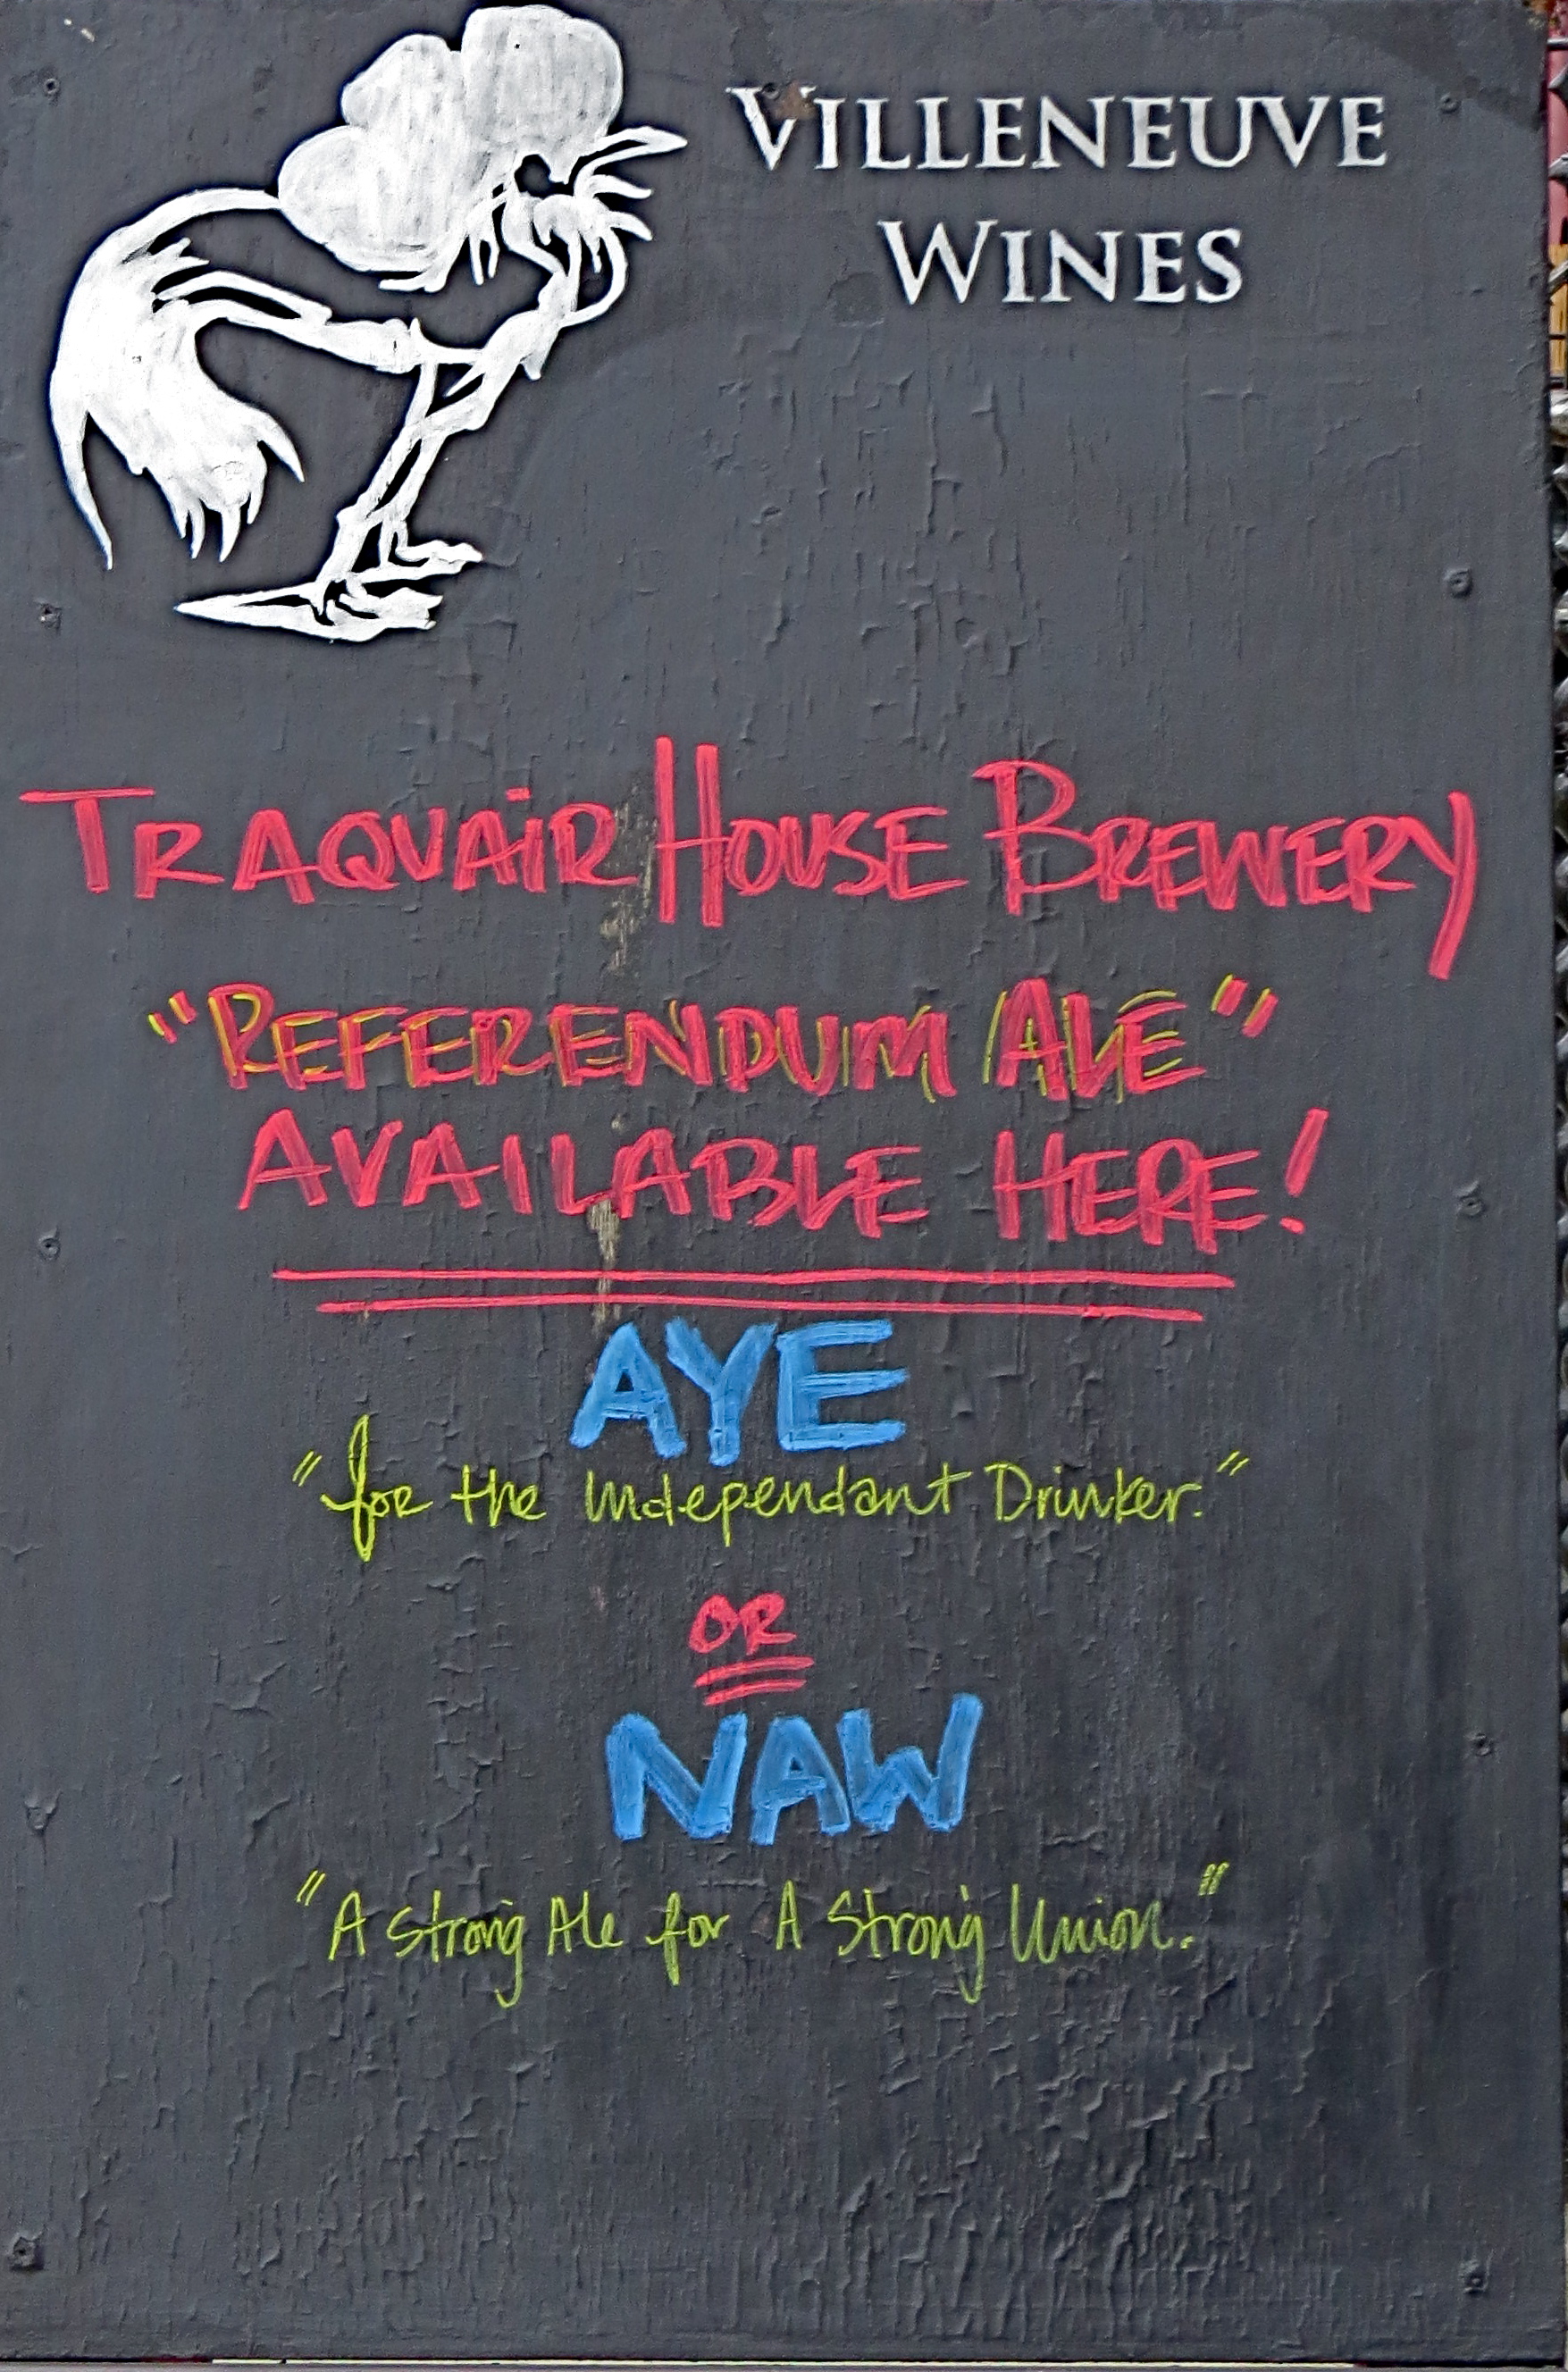 VILLENEUVE
WINES
TRAQUAiR HOUSE BREWERY
"REFERENDUM ALE"
AVAILABLE HERE!
AYE
"for the Independant Drinker."
OR
NAW
"A Strong Ale for A Strong Union."